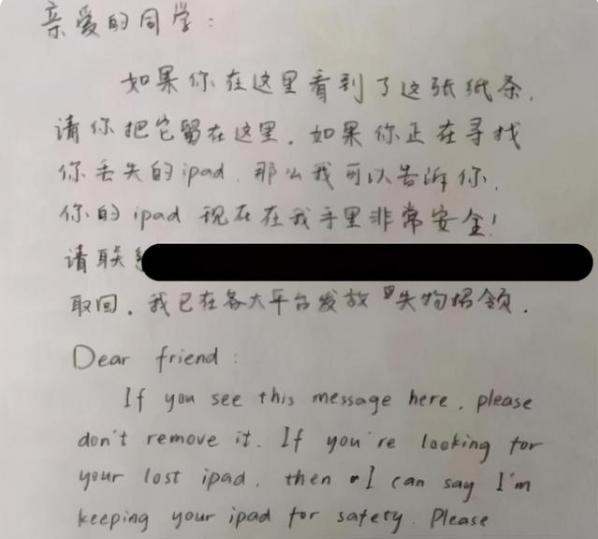 亲爱的同学：
如果你在这里看到了这张纸条，
请你把它留在这里。如果你正在寻找
你丢失的ipad，那么我可以告诉你，
你的ipad 现在在我手里非常安全！
请联
取回。我已在各大平台发放失物招领。
Dear friend:
If you see this message here, please
don't remove it. If you're looking for
your lost ipad, then I can say I'm
keeping your ipad for safety. Please